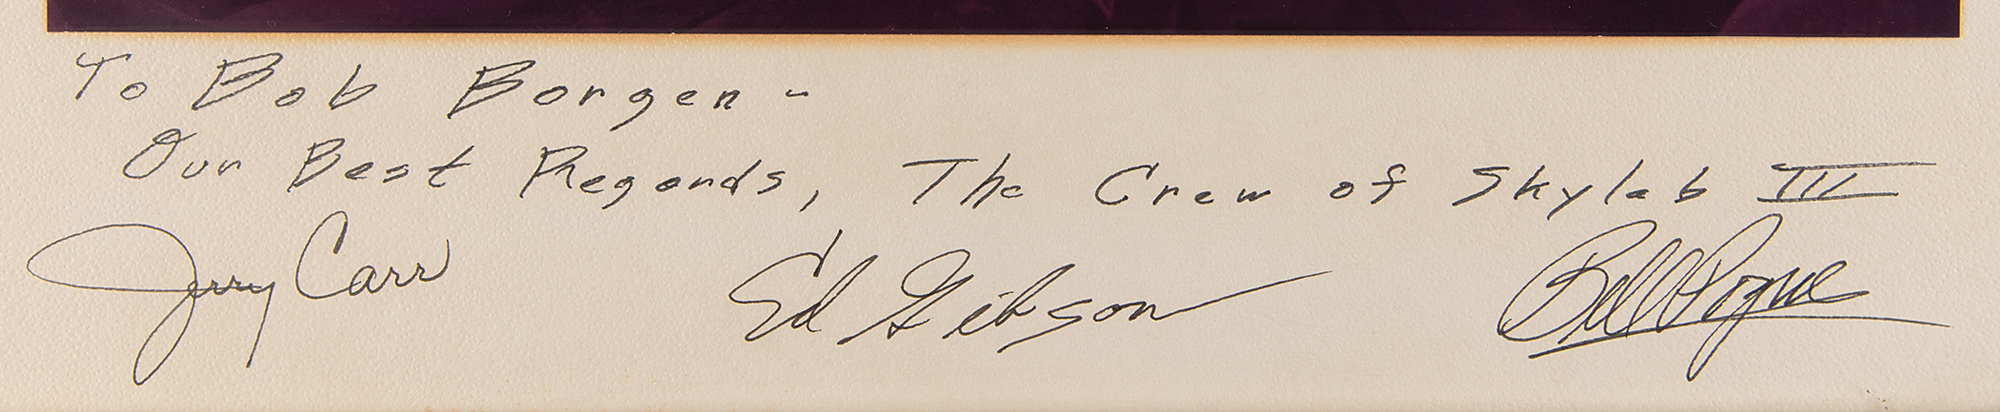 To Bob Borgen -
Our Best Regards, The Crew of Skylab III
Jerry Carr Ed Gibson Bill Pogue